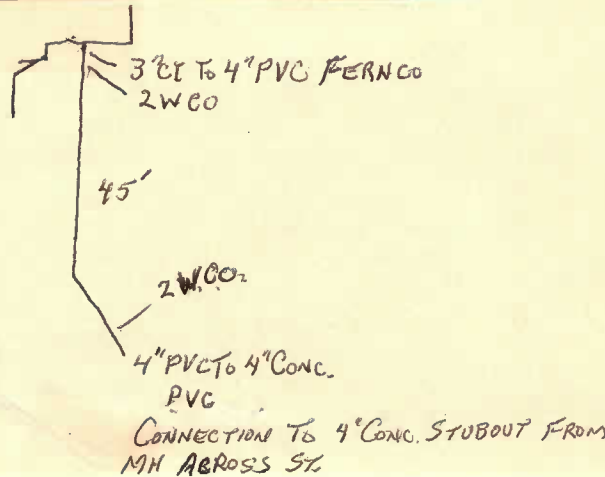 3"CI To 4"PVC FERNCO
2WCO
45'
2W.CO.
4"PVC To 4"CONC.
PVC
CONNECTION To 4"CONC. STUBOUT FROM
MH ACROSS ST.